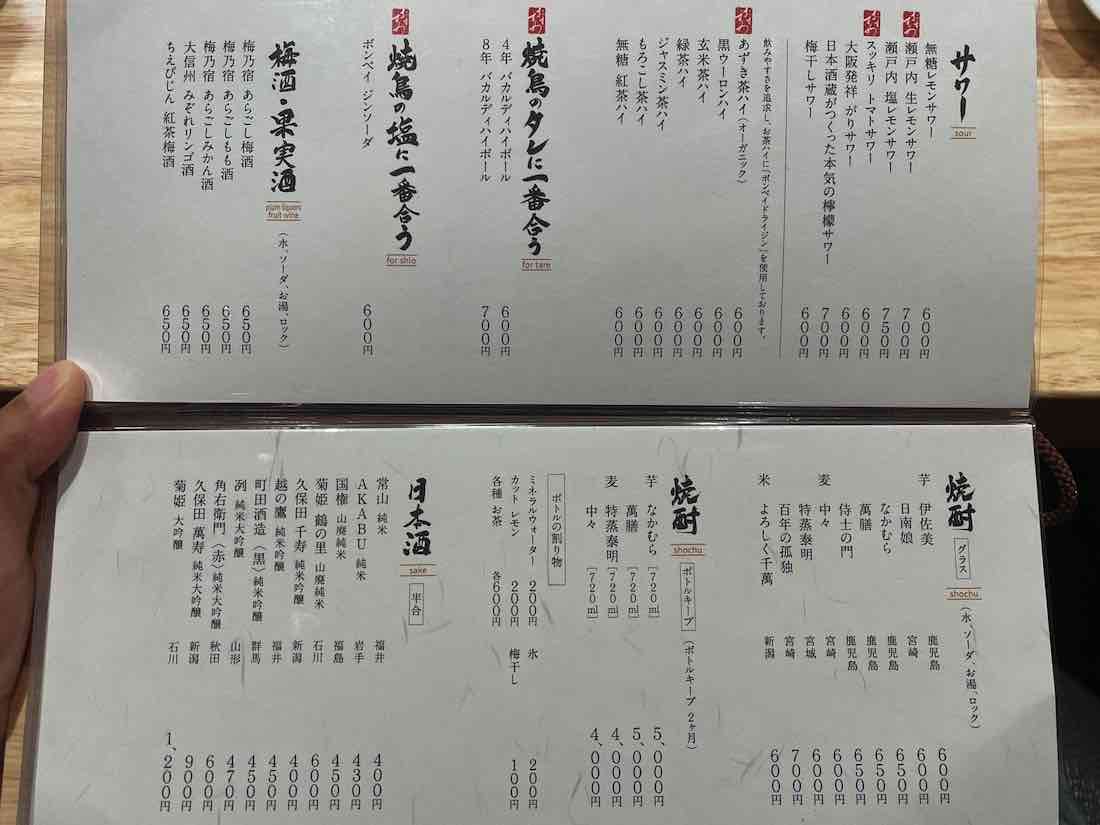 サワー
sour
無糖レモンサワー 600円
瀬戸内 生レモンサワー 700円
瀬戸内 塩レモンサワー 750円
スッキリ トマトサワー 600円
大阪発祥 がりサワー 600円
日本酒蔵がつくった本気の檸檬サワー 700円
梅干しサワー 600円
飲みやすさを追求し、お茶ハイに「ボンベイドライジン」を使用しております。
あずき茶ハイ（オーガニック） 600円
黒ウーロンハイ 600円
玄米茶ハイ 600円
緑茶ハイ 600円
ジャスミン茶ハイ 600円
もろこし茶ハイ 600円
無糖 紅茶ハイ 600円
焼鳥のタレに一番合う
for tare
4年 バカルディハイボール 600円
8年 バカルディハイボール 700円
焼鳥の塩に一番合う
for shio
ボンベイ ジンソーダ 600円
梅酒・果実酒
plum liquors
fruit wine
（水、ソーダ、お湯、ロック）
梅乃宿 あらごし梅酒 650円
梅乃宿 あらごしもも酒 650円
梅乃宿 あらごしみかん酒 650円
大信州 みぞれリンゴ酒 650円
ちえびじん 紅茶梅酒 650円
焼酎
グラス
shochu
（水、ソーダ、お湯、ロック）
芋 伊佐美 鹿児島 600円
日南娘 宮崎 600円
なかむら 鹿児島 650円
萬膳 鹿児島 650円
侍士の門 鹿児島 650円
麦 中々 宮崎 600円
特蒸泰明 宮城 600円
百年の孤独 宮崎 700円
米 よろしく千萬 新潟 600円
焼酎
shochu
ボトルキープ
（ボトルキープ 2ヶ月）
芋 なかむら [720ml] 5,000円
萬膳 [720ml] 5,000円
麦 特蒸泰明 [720ml] 4,000円
中々 [720ml] 4,000円
ボトルの割り物
ミネラルウォーター 200円 氷 200円
カット レモン 200円 梅干し 100円
各種 お茶 各600円
日本酒
sake
半合
常山 純米 福井 400円
AKABU 純米 岩手 430円
国権 山廃純米 福島 450円
菊姫 鶴の里 山廃純米 石川 600円
久保田 千寿 純米吟醸 新潟 400円
越の鷹 純米吟醸 福井 450円
町田酒造（黒）純米吟醸 群馬 450円
冽 純米大吟醸 山形 470円
角右衛門（赤）純米大吟醸 秋田 600円
久保田 萬寿 純米大吟醸 新潟 900円
菊姫 大吟醸 石川 1,200円